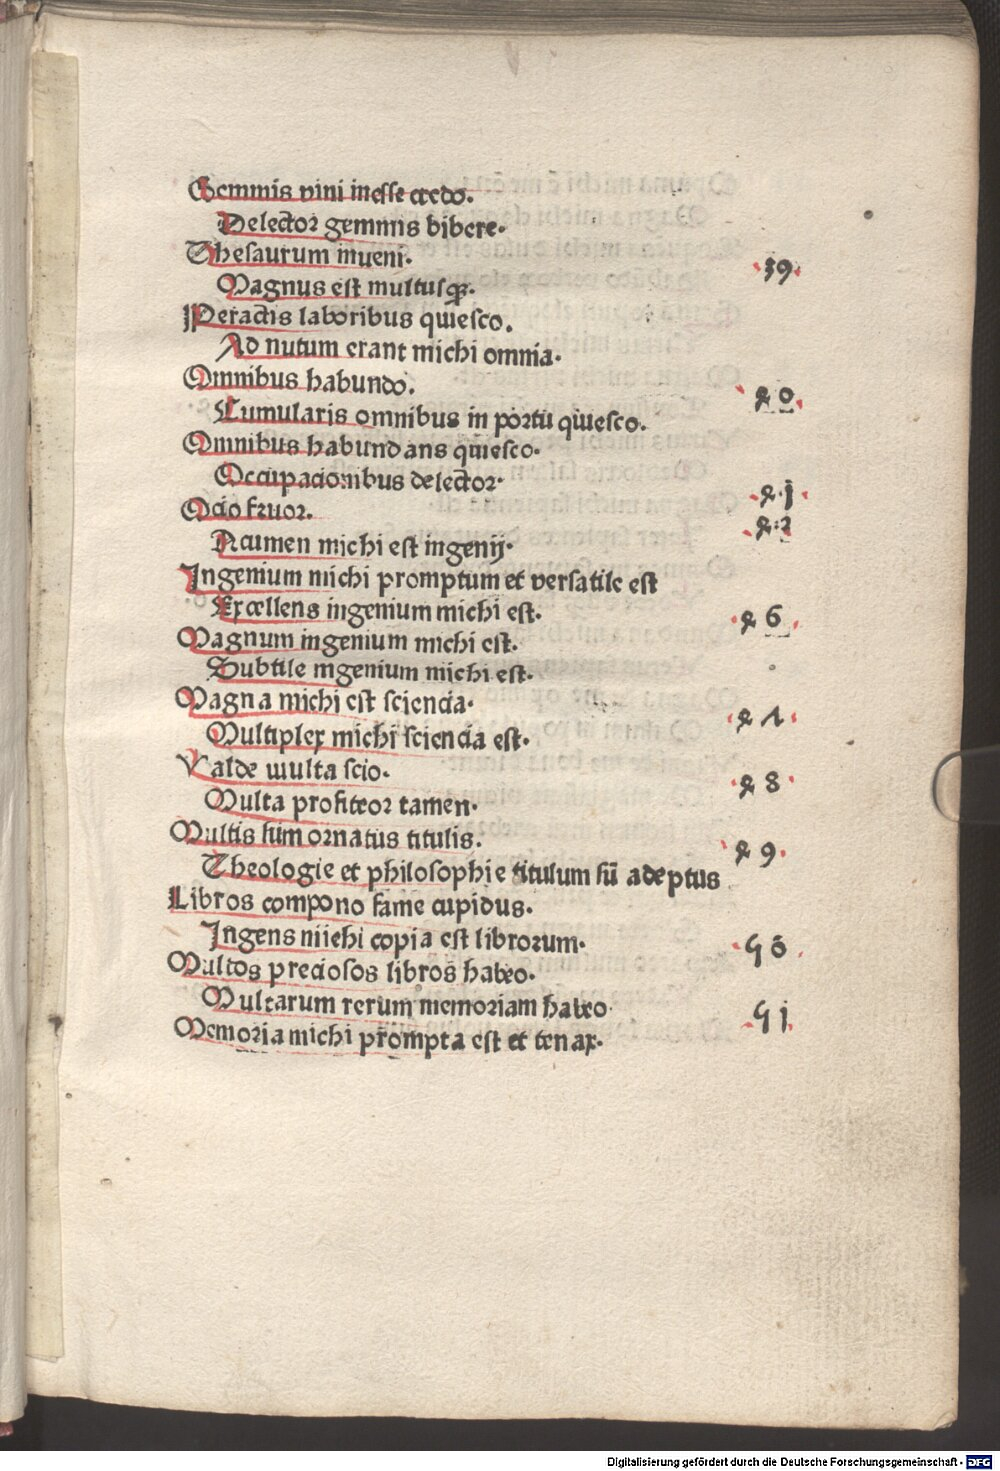 Gemmis vini inesse credo.
Delector gemmis bibere.
Thesaurum inueni. 39
Magnus est multusqꝫ.
Peractis laboribus quiesco.
Ad nutum erant michi omnia.
Omnibus habundo. 40
Cumularis omnibus in portu quiesco.
Omnibus habundans quiesco.
Occupacionibus delector. 41
Ocio fruor. 42
Acumen michi est ingenij.
Ingenium michi promptum et versatile est
Excellens ingenium michi est. 46
Magnum ingenium michi est.
Subtile ingenium michi est.
Magna michi est sciencia. 47
Multiplex michi sciencia est.
Valde multa scio. 48
Multa profiteor tamen.
Multis sum ornatus titulis. 49
Theologie et philosophie titulum sū adeptus
Libros compono fame cupidus.
Ingens michi copia est librorum. 50
Multos preciosos libros habeo.
Multarum rerum memoriam habeo 51
Memoria michi prompta est et tenax.
Digitalisierung gefördert durch die Deutsche Forschungsgemeinschaft - DFG